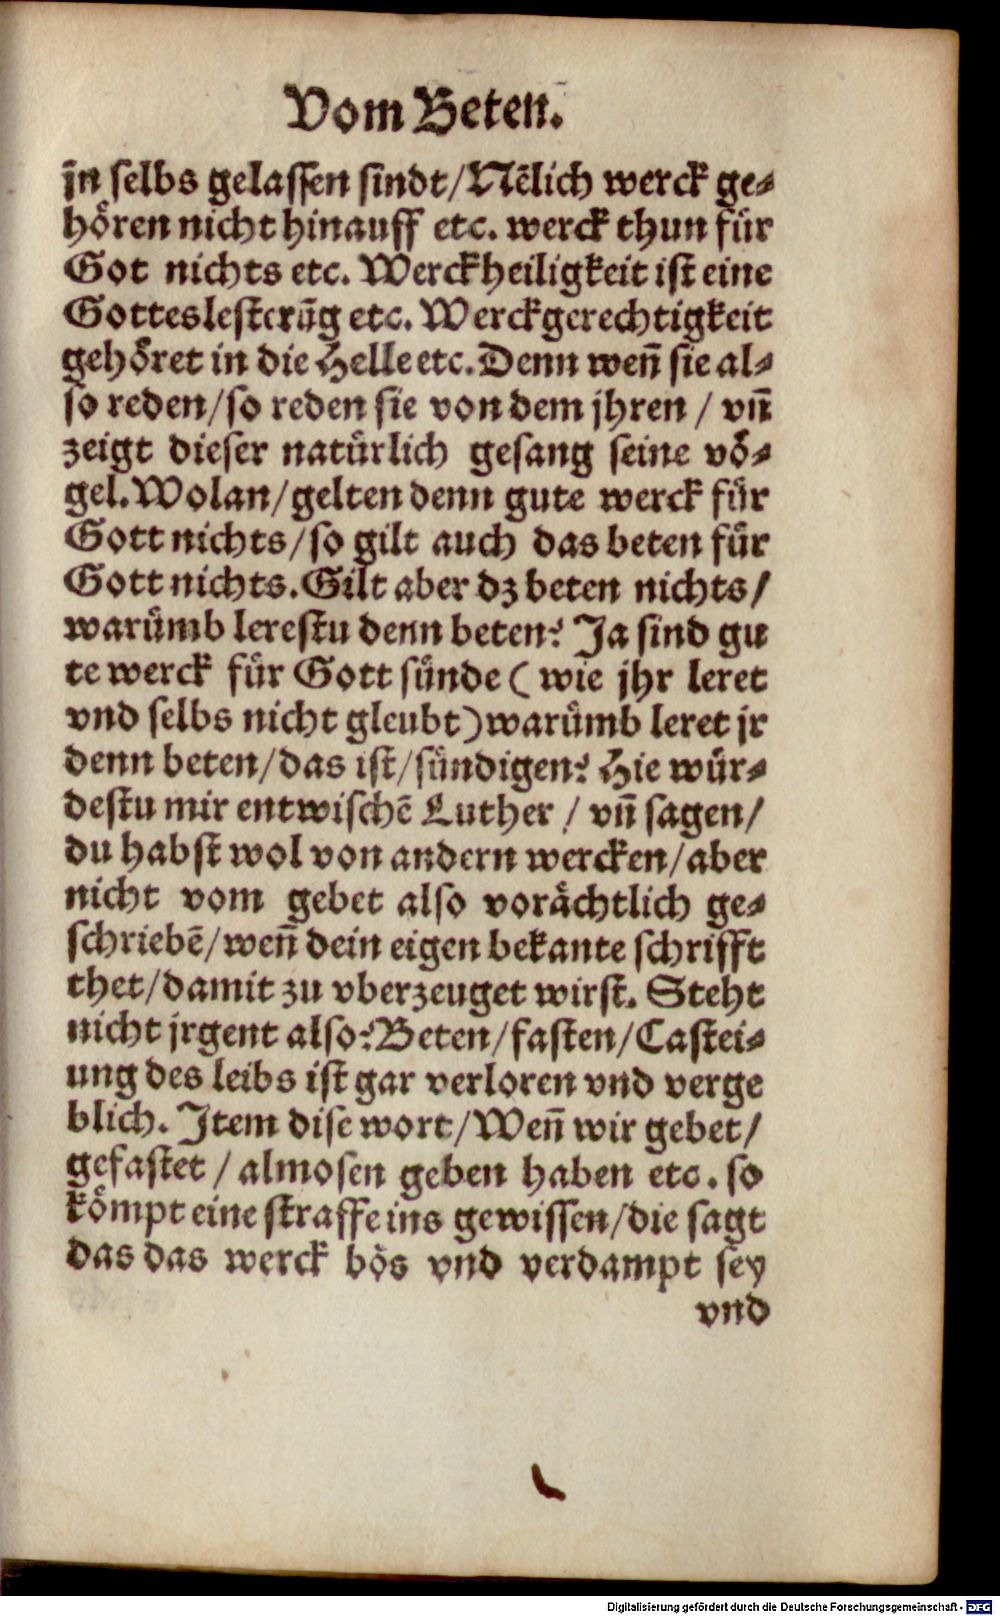 Vom Beten.
jn̄ selbs gelassen sindt/Nēlich werck ge⸗
hören nicht hinauff etc. werck thun für
Got nichts etc. Werckheiligkeit ist eine
Gotteslesterūg etc. Werckgerechtigkeit
gehöret in die Helle etc. Denn weñ sie al⸗
so reden/so reden sie von dem jhren / vñ
zeigt dieser natürlich gesang seine vö⸗
gel. Wolan/gelten denn gute werck für
Gott nichts/so gilt auch das beten für
Gott nichts. Gilt aber dz beten nichts/
warümb lerestu denn beten? Ja sind gu
te werck für Gott sünde ( wie jhr leret
vnd selbs nicht gleubt) warümb leret jr
denn beten/das ist/sündigen? Hie wür⸗
destu mir entwischē Luther / vñ sagen/
du habst wol von andern wercken/aber
nicht vom gebet also vorächtlich ge⸗
schriebē/weñ dein eigen bekante schrifft
thet/damit zu vberzeuget wirst. Steht
nicht jrgent also? Beten/fasten/Castei⸗
ung des leibs ist gar verloren vnd verge
blich. Item dise wort/Weñ wir gebet/
gefastet / almosen geben haben etc. so
kömpt eine straffe ins gewissen/die sagt
das das werck bös vnd verdampt sey
vnd
Digitalisierung gefördert durch die Deutsche Forschungsgemeinschaft - DFG